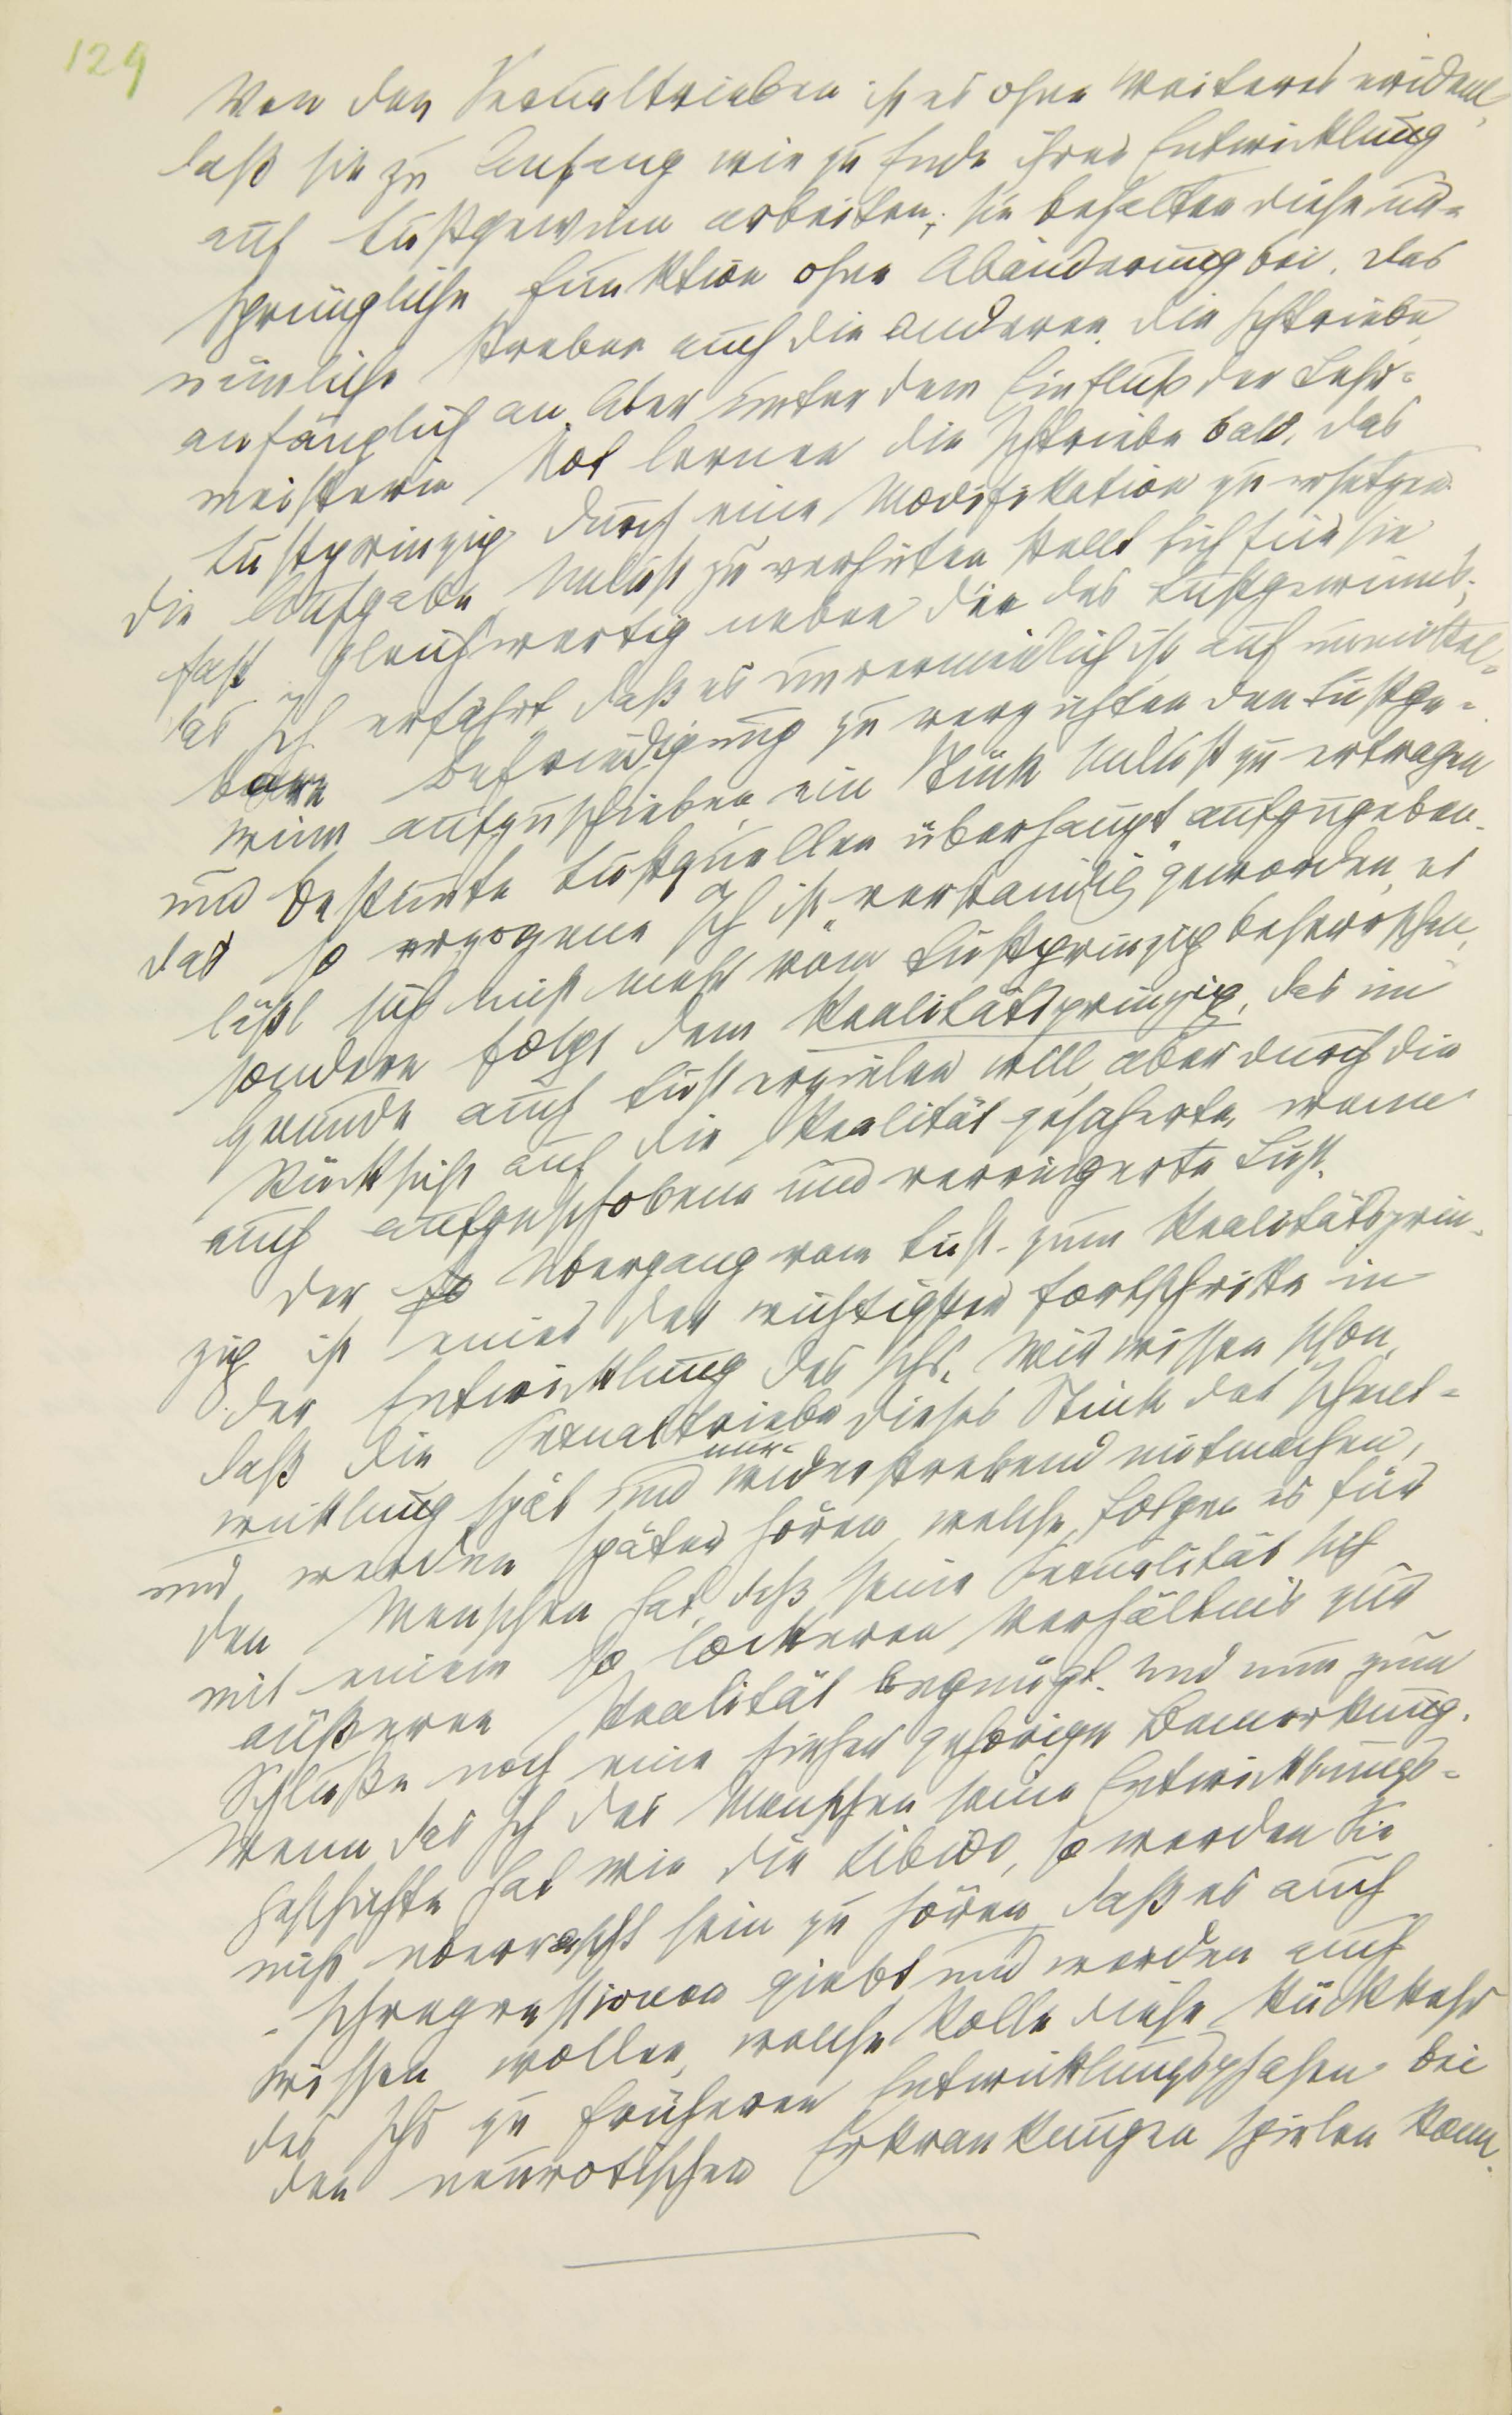 129
Von den Sexualtrieben ist es ohne Weiteres evident,
daß sie zu Anfang wie zu Ende ihrer Entwicklung
auf Lustgewinn arbeiten; sie behalten diese ur=
sprüngliche Funktion ohne Abänderung bei. Das
nämliche streben auch die anderen, die Ichtriebe,
anfänglich an. Aber unter dem Einfluß der Lehr=
meisterin Not lernen die Ichtriebe bald, das
Lustprinzip durch eine Modifikation zu ersetzen.
Die Aufgabe, Unlust zu verhüten stellt sich für sie
fast gleichwertig neben die des Lustgewinns;
das Ich erfährt, daß es unvermeidlich ist, auf unmittel=
bare Befriedigung zu verzichten, den Lustge=
winn aufzuschieben, ein Stück Unlust zu ertragen
und bestimmte Lustquellen überhaupt aufzugeben.
Das so erzogene Ich ist „verständig" geworden, es
läßt sich nicht mehr vom Lustprinzip beherrschen,
sondern folgt dem Realitätsprinzip, das im
Grunde auch Lust erzielen will, aber durch die
Rücksicht auf die Realität gesicherte, wenn
auch aufgeschobene und verringerte Lust.
Der so Übergang vom Lust- zum Realitätsprin=
zip ist einer der wichtigsten Fortschritte in
der Entwicklung des Ichs. Wir wissen schon,
daß die Sexualtriebe dieses Stück der Ichent=
wicklung spät und nur widerstrebend mitmachen,
und werden später hören, welche Folgen es für
den Menschen hat, daß seine Sexualität sich
mit einem so lockeren Verhältnis zur
äußeren Realität begnügt. Und nun zum
Schluße noch eine hieher gehörige Bemerkung.
Wenn das Ich des Menschen seine Entwicklungs=
geschichte hat wie die Libido, so werden Sie
nicht überrascht sein zu hören, daß es auch
„Ichregressionen giebt und werden auch
wissen wollen, welche Rolle diese Rückkehr
des Ichs zu früheren Entwicklungsphasen bei
den neurotischen Erkrankungen spielen kann.